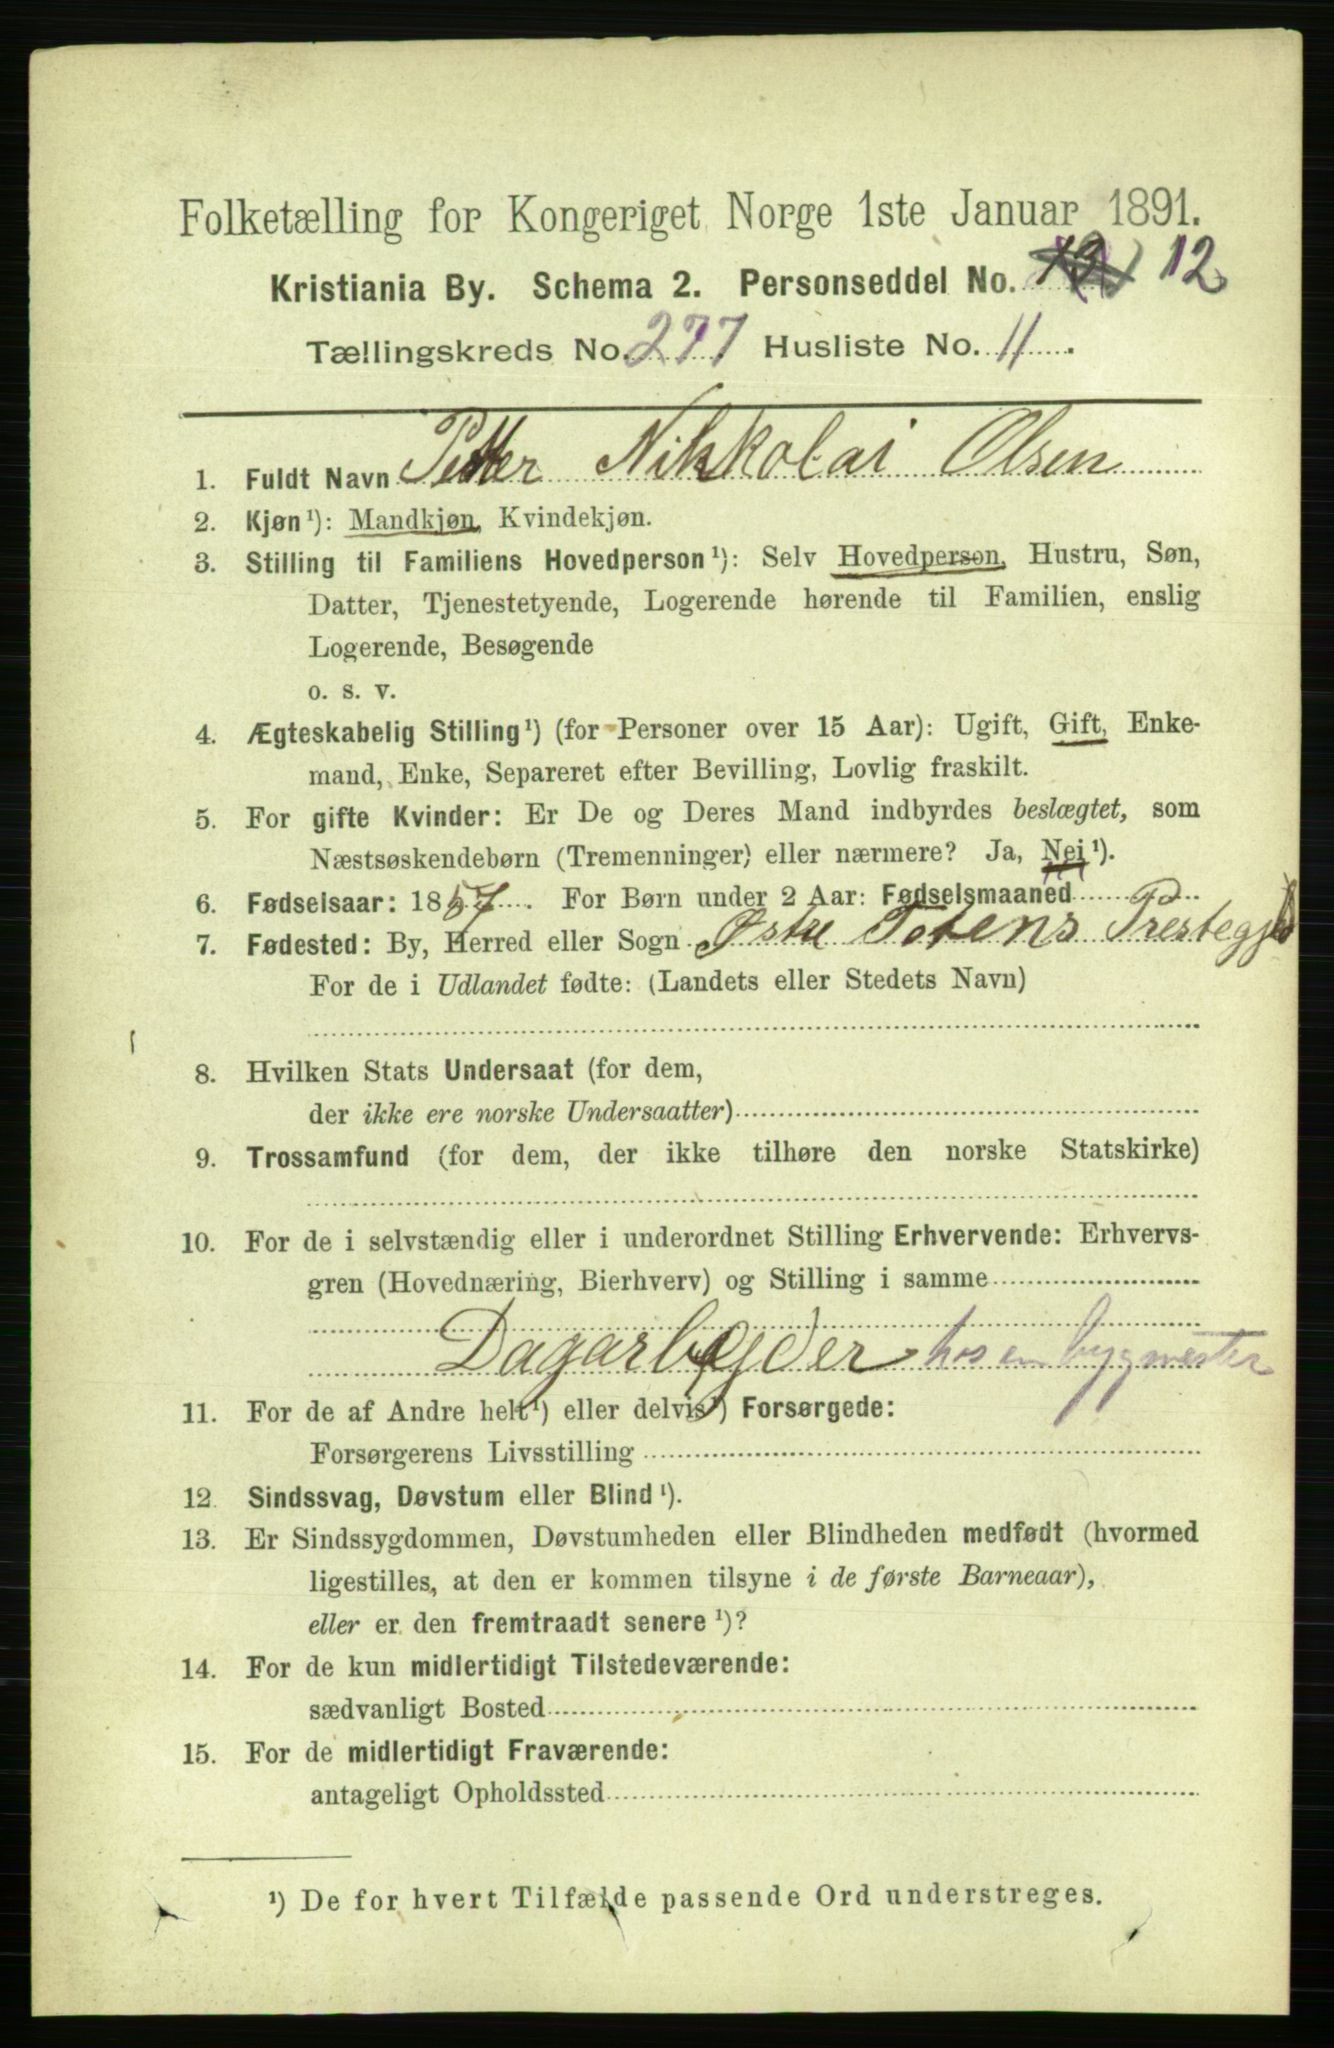 Folketælling for Kongeriget Norge 1ste Januar 1891.
Kristiania By. Schema 2. Personseddel No. 12
Tællingskreds No. 277 Husliste No. 11.
1. Fuldt Navn Petter Nikkolai Olsen
2. Kjøn¹): Mandkjøn, Kvindekjøn.
3. Stilling til Familiens Hovedperson¹): Selv Hovedperson, Hustru, Søn,
Datter, Tjenestetyende, Logerende hørende til Familien, enslig
Logerende, Besøgende
o. s. v.
4. Ægteskabelig Stilling¹) (for Personer over 15 Aar): Ugift, Gift, Enke-
mand, Enke, Separeret efter Bevilling, Lovlig fraskilt.
5. For gifte Kvinder: Er De og Deres Mand indbyrdes beslægtet, som
Næstsøskendebørn (Tremenninger) eller nærmere? Ja, Nei¹).
6. Fødselsaar: 1857. For Børn under 2 Aar: Fødselsmaaned
7. Fødested: By, Herred eller Sogn Østre Totens Prestegjeld
For de i Udlandet fødte: (Landets eller Stedets Navn)
8. Hvilken Stats Undersaat (for dem,
der ikke ere norske Undersaatter)
9. Trossamfund (for dem, der ikke tilhøre den norske Statskirke)
10. For de i selvstændig eller i underordnet Stilling Erhvervende: Erhvervs-
gren (Hovednæring, Bierhverv) og Stilling i samme
Dagarbejder hos en bygmester
11. For de af Andre helt¹) eller delvis¹) Forsørgede:
Forsørgerens Livsstilling
12. Sindssvag, Døvstum eller Blind¹).
13. Er Sindssygdommen, Døvstumheden eller Blindheden medfødt (hvormed
ligestilles, at den er kommen tilsyne i de første Barneaar),
eller er den fremtraadt senere¹)?
14. For de kun midlertidigt Tilstedeværende:
sædvanligt Bosted
15. For de midlertidigt Fraværende:
antageligt Opholdssted
¹) De for hvert Tilfælde passende Ord understreges.